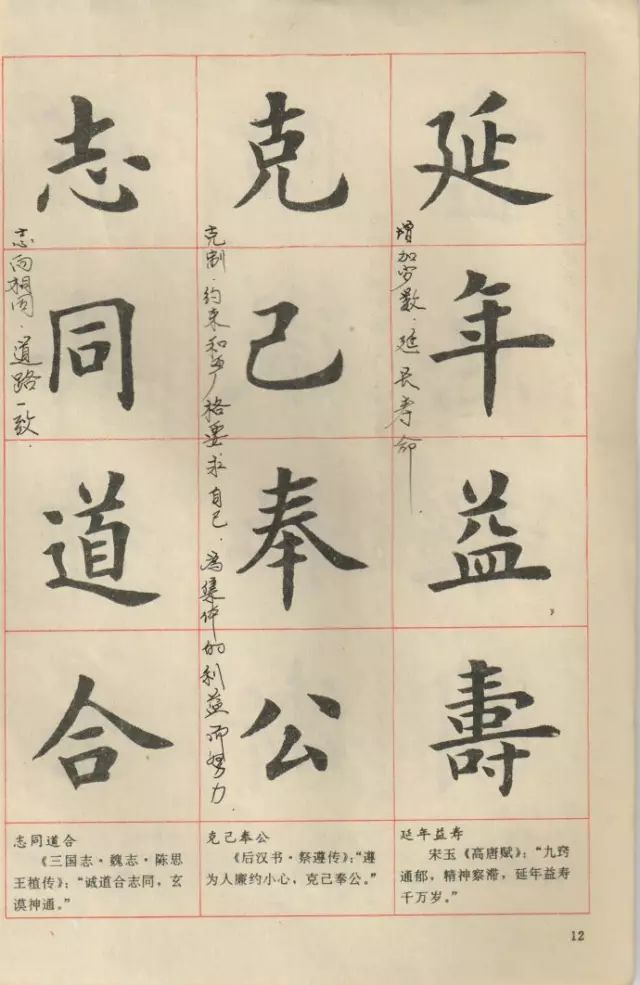 延年益壽
增加岁数.延长寿命
克己奉公
克制.约束和严格要求自己.為集体的利益而努力.
志同道合
志向相同.道路一致.
延年益寿
宋玉《高唐赋》：“九窍
通郁，精神察滞，延年益寿
千万岁。”
克己奉公
《后汉书·祭遵传》：“遵
为人廉约小心，克己奉公。”
志同道合
《三国志·魏志·陈思
王植传》：“诚道合志同，玄
谟神通。”
12